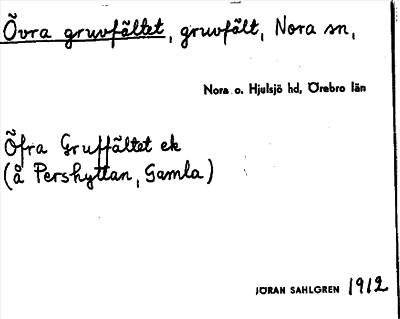 Övra gruvfältet, gruvfält, Nora sn,
Nora o. Hjulsjö hd, Örebro län
Öfra Gruffältet ek
(å Pershyttan, Gamla)
JÖRAN SAHLGREN 1912